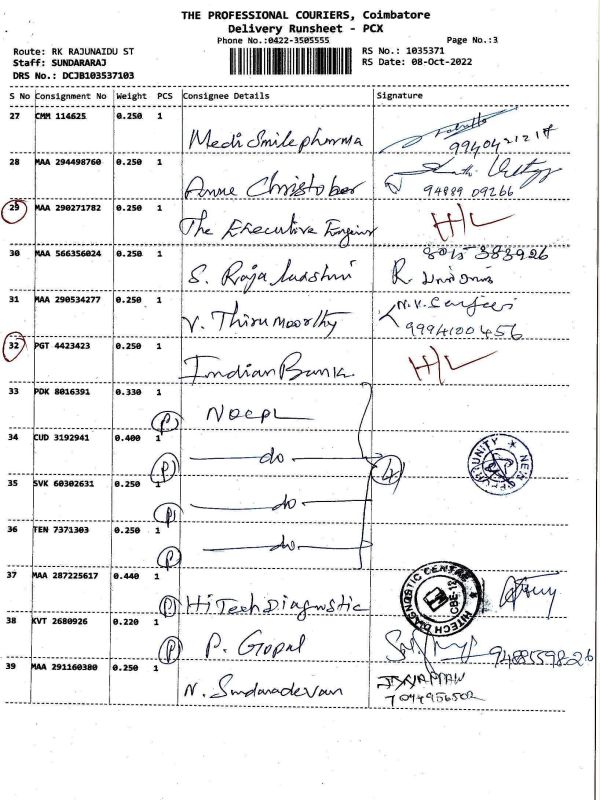 THE PROFESSIONAL COURIERS, Coimbatore
Delivery Runsheet - PCX
Phone No.:0422-3505555
Page No.:3
Route: RK RAJUNAIDU ST
RS No.: 1035371
Staff: SUNDARARAJ
RS Date: 08-Oct-2022
DRS No.: DCJB103537103
S No Consignment No Weight PCS Consignee Details Signature
27 CMM 114625 0.250 1
Medi Smile pharma
9940421214
28 MAA 294498760 0.250 1
Anne Christober
94889 09266
29 MAA 290271782 0.250 1
The Executive Engineer H/L
30 MAA 566356024 0.250 1 8015383926
S. Rajalakshmi R.
31 MAA 290534277 0.250 1
V. Thirumoorthy 9994100456
32 PGT 4423423 0.250 1
Indian Bank H/L
33 PDK 8016391 0.330 1
(P) NOCPL
34 CUD 3192941 0.400 1
(P) do (4)
35 SVK 60302631 0.250 1
(P) do
36 TEN 7371303 0.250 1
(P) do
37 MAA 287225617 0.440 1
HITECH DIAGNOSTIC CENTRE
(P) HiTech Diagnostic
38 KVT 2680926 0.220 1
(P) P. Gopal 9488559826
39 MAA 291160380 0.250 1
N. Sundaradevan